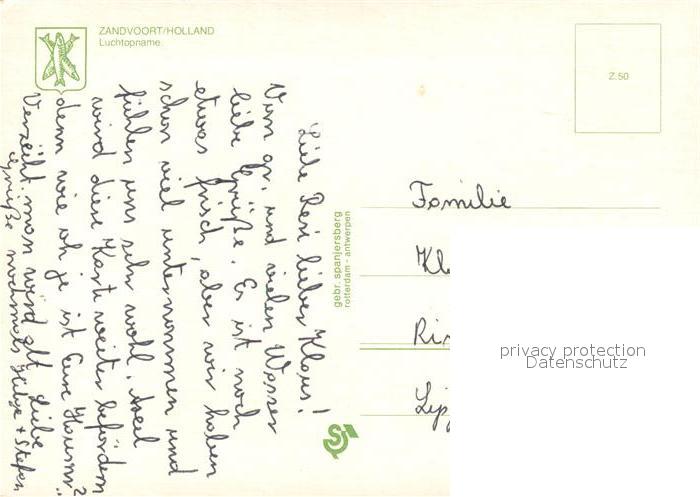 ZANDVOORT/HOLLAND
Luchtopname.
Z.50
Liebe Resi lieber Klaus!
Vom gr. und vielen Wasser
liebe Grüße. Es ist noch
etwas frisch, aber wir haben
schon viel unternommen und
fühlen uns sehr wohl.
wird diese Karte weiter befördern
denn wie oh je ist Eure Hausnr?
Verzeiht man wird alt Liebe
Grüße nochmals + Stefan
gebr. spanjersberg
rotterdam - antwerpen
Familie
Kl
Ri
Lip
privacy protection
Datenschutz